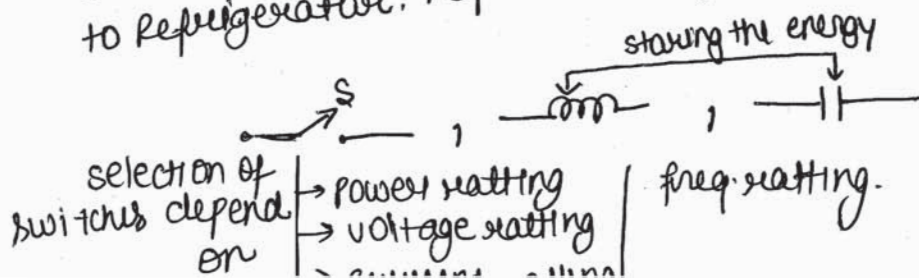 to Refrigerator.
staring the energy
S
, ,
selection of
switches depend
on
→ power ratting
→ voltage ratting
freq. ratting.